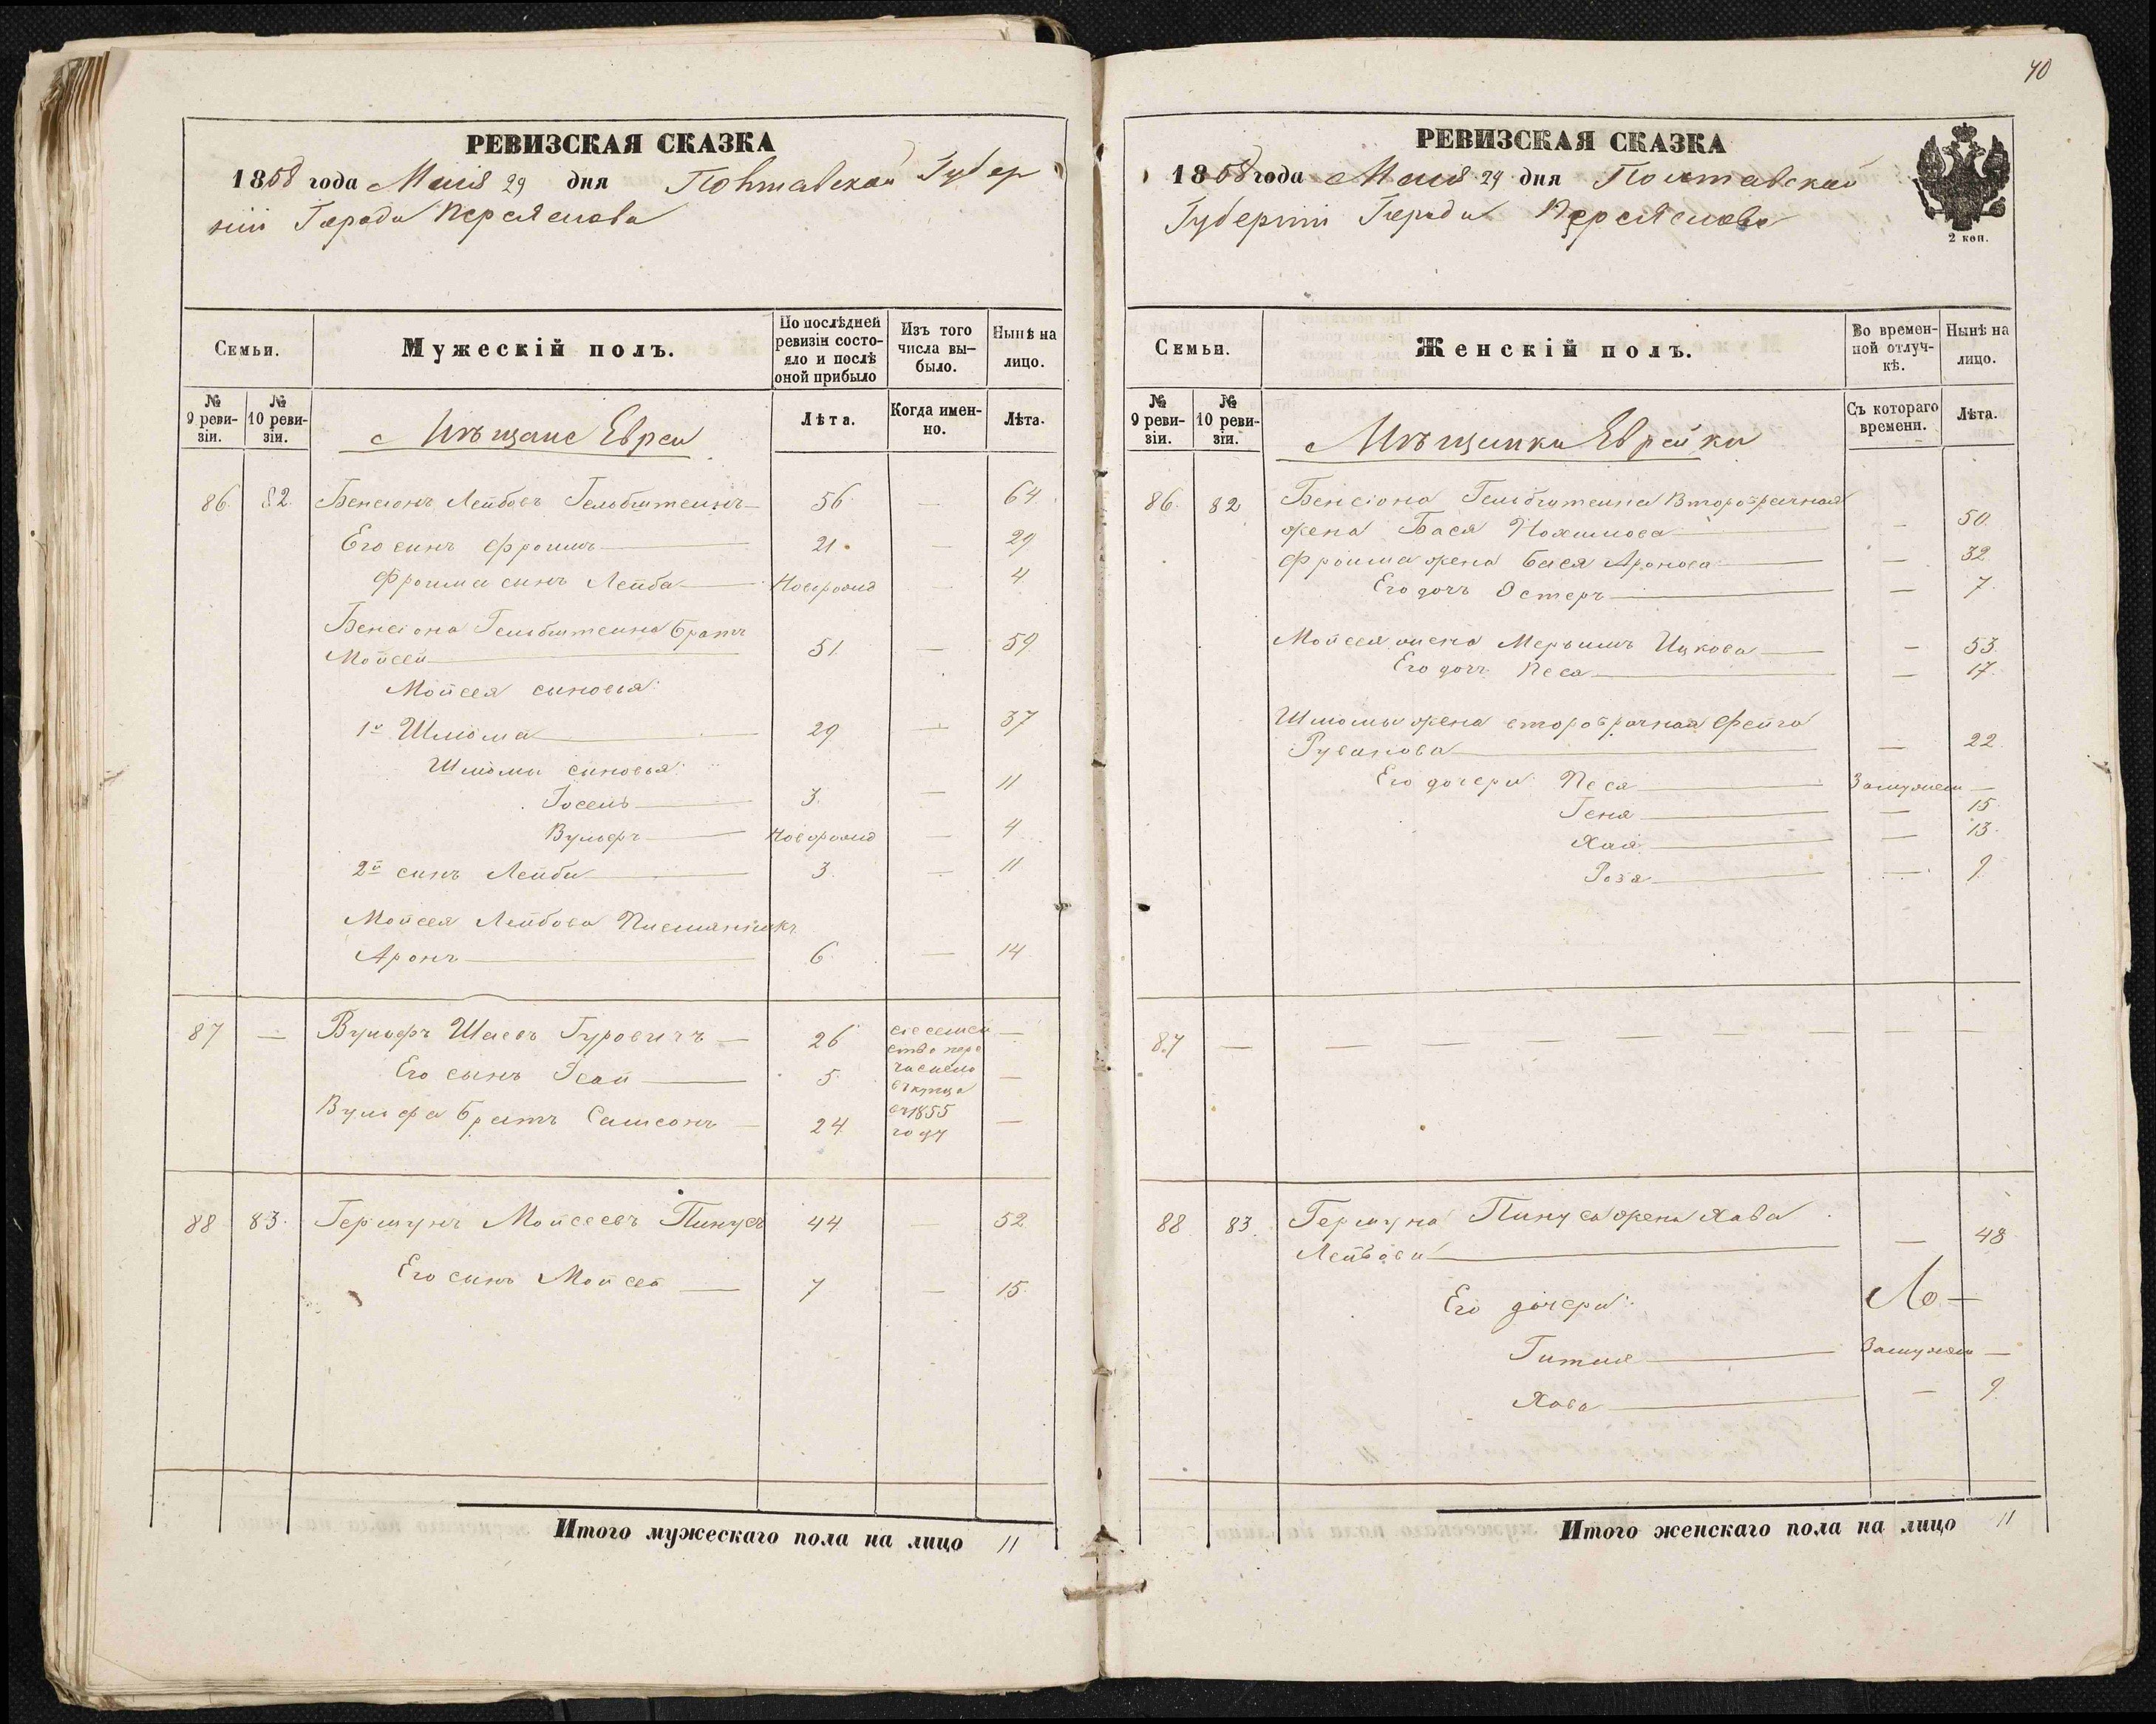 40
РЕВИЗСКАЯ СКАЗКА
1858 года Маія 29 дня Полтавской Губер
ніи Города Переяслова
Семьи.
Мужескій полъ.
По послѣдней ревизіи состояло и послѣ оной прибыло
Изъ того числа выбыло.
Нынѣ на лицо.
№ 9 ревизіи.
№ 10 ревизіи.
Мѣщане Евреи
Лѣта.
Когда именно.
Лѣта.
86 82. Бенсіонъ Лейбовъ Гельбштейнъ 56 — 64
Его сынъ Фроимъ 21. — 29
Фроима сынъ Лейба Новорожд — 4
Бенсіона Гельбштейна братъ
Мойсей 51. — 59.
Мойсея сыновья:
1й Шлиома 29 — 37
Шлиомы сыновья:
Іосель 3. — 11
Вульфъ Новорожд — 4
2й сынъ Лейба 3. — 11
Мойсея Лейбова Племянникъ
Аронъ 6 — 14
87 — Вульфъ Шаевъ Гуровичъ — 26 сіе семей —
ство пере
Его сынъ Исай 5. числено —
въ купца
Вульфа братъ Самсонъ — 24. въ 1855 —
году
88 83. Гершунъ Мойсеевъ Пинусъ 44 52
Его сынъ Мойсей 7 — 15.
Итого мужескаго пола на лицо 11
РЕВИЗСКАЯ СКАЗКА
1858 года Маія 29 дня Полтавской
Губерніи Города Переяслова
2 коп.
Семьи.
Женскій полъ.
Во временной отлучкѣ.
Нынѣ на лицо.
№ 9 ревизіи.
№ 10 ревизіи.
Мѣщанки Еврейки
Съ котораго времени.
Лѣта.
86. 82 Бенсіона Гельбштейна Второбрачная
жена Бася — 50.
Фроима жена Бася Аронова — 32
Его дочь Эстеръ — 7.
Мойсея жена Мерьимъ Ицкова — 53.
Его дочь Песя — 17.
Шлиомы жена второбрачная Фейга
Рувинова — 22
Его дочери: Песя Замужем —
Геня — 15
Хая — 13.
Роза — 9.
87 — — — — — — — — —
88 83. Гершуна Пинуса жена Хава
Лейбова — 48
Его дочери:
Гитля Замужем —
Хава — 9.
Итого женскаго пола на лицо 11